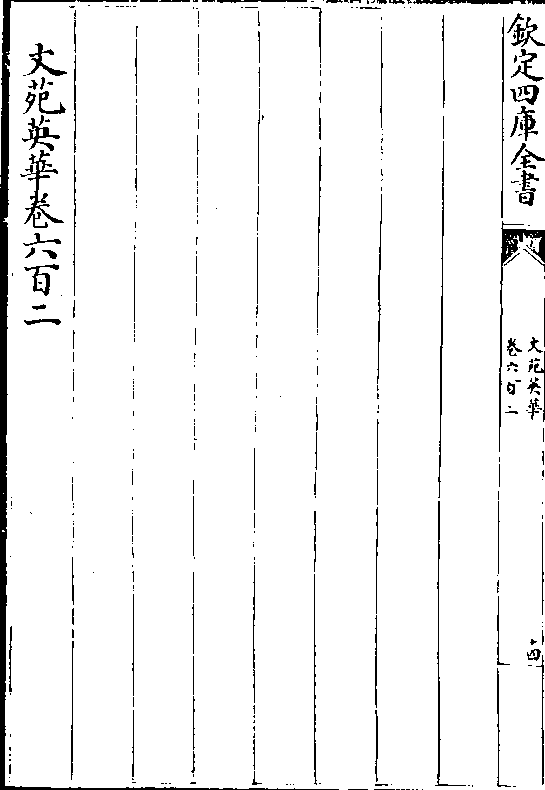 欽定四庫全書
文苑英華
卷六百二
文苑英華卷六百二